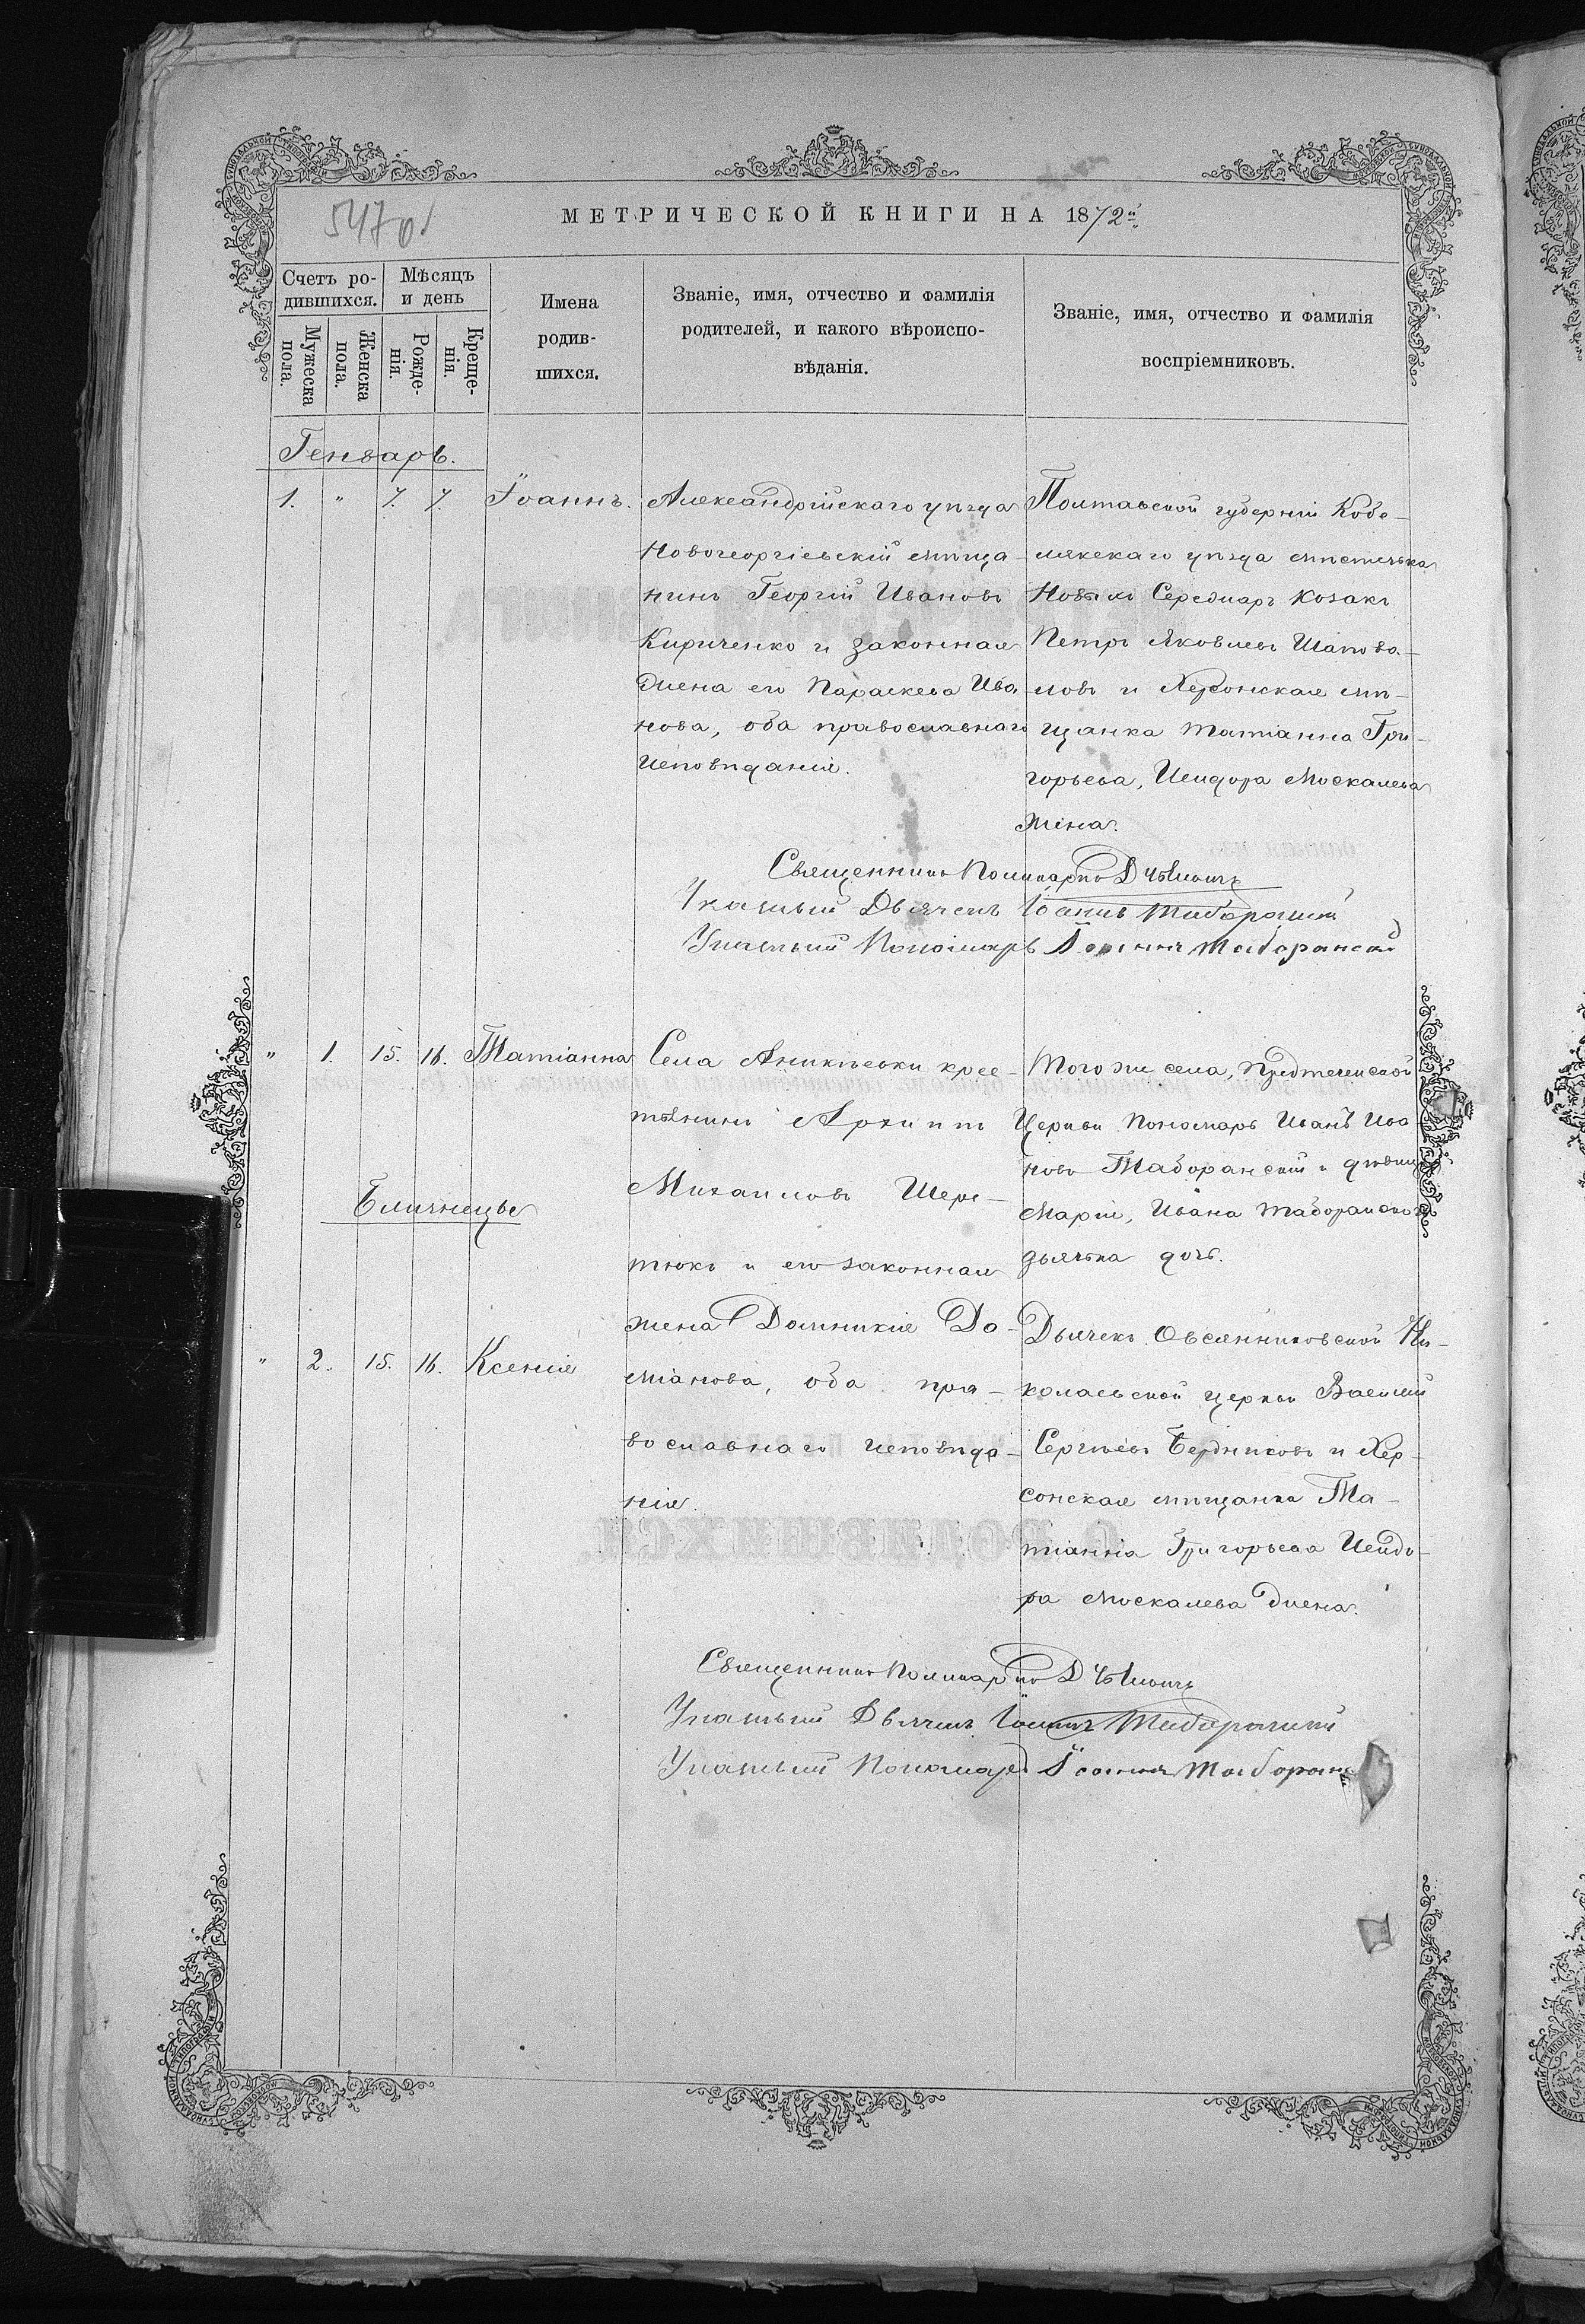 МЕТРИЧЕСКОЙ КНИГИ НА 1872й
Счетъ ро-
дившихся.
Мужеска
пола.
Женска
пола.
Мѣсяцъ
и день
Рожде-
нія.
Креще-
нія.
Имена
родив-
шихся.
Званіе, имя, отчество и фамилія
родителей, и какого вѣроиспо-
вѣданія.
Званіе, имя, отчество и фамилія
воспріемниковъ.
Генварь.
1. " 7. 7. Іоаннъ.
Александрійскаго уѣзда
Новогеоргіевскій мѣща-
нинъ Георгій Ивановъ
Кириченко и законная
жена его Параскева Ива-
нова, оба православнаго
исповѣданія.
Полтавской губерніи Кобе-
лякскаго уѣзда мѣстечка
Новыхъ Сержаръ козакъ
Петръ Яковлевъ Шапова-
ловъ и Херсонская мѣ-
щанка Татіанна Гри-
горьева, Исидора Москалева
жена.
Священникъ Поликарпъ
Указный Дьячекъ Іоаннъ Таборанскій
Указный Пономарь Іоаннъ Таборанскій
" 1. 15. 16. Татіанна
Близнецы
" 2. 15. 16. Ксенія
Села Аникѣевки крес-
тянинъ Архипъ
Михаиловъ Шере-
тюкъ и его законная
жена Домникія До-
міанова, оба пра-
вославнаго исповѣда-
нія.
Того же села, Предтечинской
Церкви Пономарь Иванъ Ива
новъ Таборанскій и дѣвица
Марія, Ивана Таборанскаго
дьячька дочь.
Дьячекъ Овсянниковской Ни-
колаевской церкви Василій
Сергѣевъ Бердниковъ и Хер-
сонская мѣщанка Та-
тіанна Григорьева Исидо-
ра Москалева жена.
Священникъ Поликарпъ
Указный Дьячекъ Іоаннъ Таборанскій
Указный Пономарь Іоаннъ Таборанс